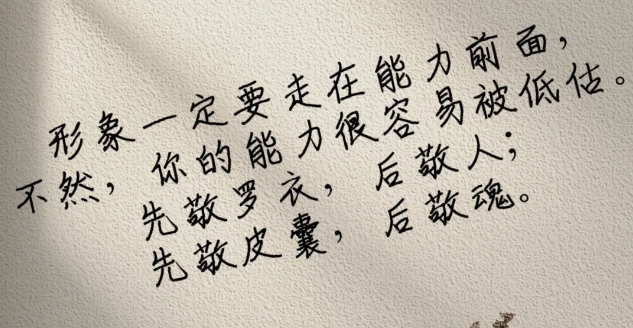 形象一定要走在能力前面，
不然，你的能力很容易被低估。
先敬罗衣，后敬人；
先敬皮囊，后敬魂。